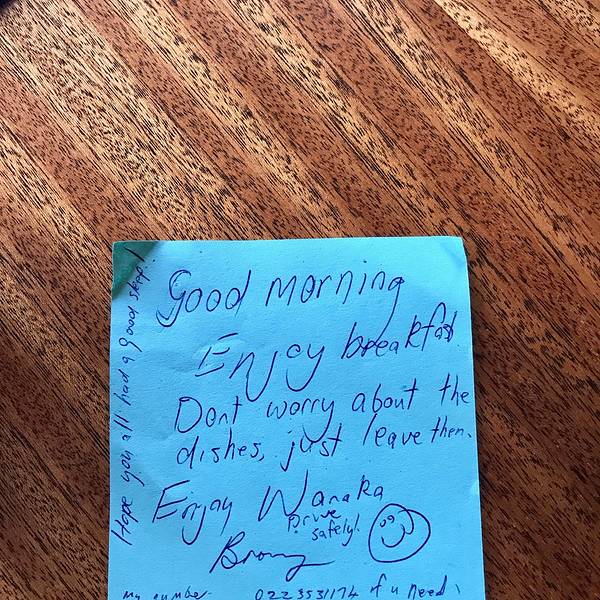 Good morning
Enjoy breakfast.
Dont worry about the
dishes, just leave them.
Enjoy Wanaka
Drive
safely!
Brony
my number 022 3531174 if u need
Hope you all had a good sleep!